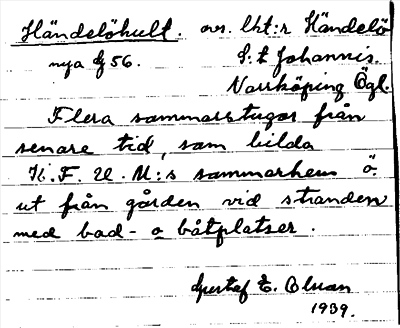 Händelöhult. avs. lht:r Händelö
nya Ɠ 56. S:t Johannis.
Norrköping Ögl.
Flera sommarstugor från
senare tid, som bilda
K.F.U.M:s sommarhem ö.
ut från gården vid stranden
med bad- o båtplatser.
Gustaf E. Olson
1939.